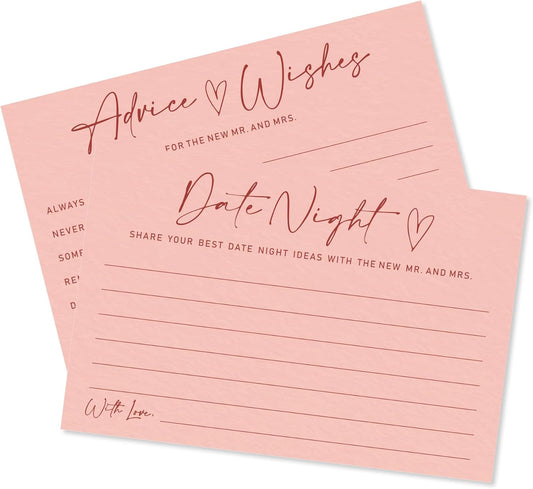 Advice ♡ Wishes
FOR THE NEW MR. AND MRS.
ALWAYS
NEVER
Date Night ♡
SHARE YOUR BEST DATE NIGHT IDEAS WITH THE NEW MR. AND MRS.
With Love,